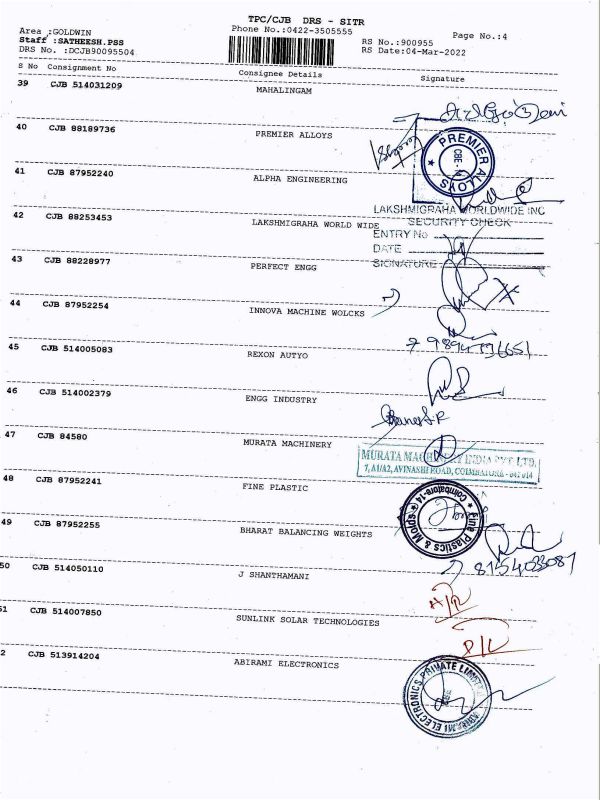 TPC/CJB DRS - SITR
Area :GOLDWIN
Phone No.:0422-3505555
Page No.:4
Staff :SATHEESH.PSS
RS No.:900955
DRS No. :DCJB90095504
RS Date:04-Mar-2022
S No Consignment No Consignee Details Signature
39 CJB 514031209 MAHALINGAM
40 CJB 88189736 PREMIER ALLOYS
PREMIER ALLOYS
CBE
41 CJB 87952240 ALPHA ENGINEERING
LAKSHMIGRAHA WORLDWIDE INC
SECURITY CHECK
42 CJB 88253453 LAKSHMIGRAHA WORLD WIDE
ENTRY No
DATE
SIGNATURE
43 CJB 88228977 PERFECT ENGG
44 CJB 87952254 INNOVA MACHINE WOLCKS
45 CJB 514005083 REXON AUTYO
46 CJB 514002379 ENGG INDUSTRY
47 CJB 84580 MURATA MACHINERY
MURATA MACHINERY INDIA PVT. LTD.
7, A1/A2, AVINASHI ROAD, COIMBATORE - 641 014
48 CJB 87952241 FINE PLASTIC
Fine Plastics & Moulds
Coimbatore-14
49 CJB 87952255 BHARAT BALANCING WEIGHTS
8154033087
50 CJB 514050110 J SHANTHAMANI
51 CJB 514007850 SUNLINK SOLAR TECHNOLOGIES
2 CJB 513914204 ABIRAMI ELECTRONICS
ABIRAMI ELECTRONICS PRIVATE LIMITED